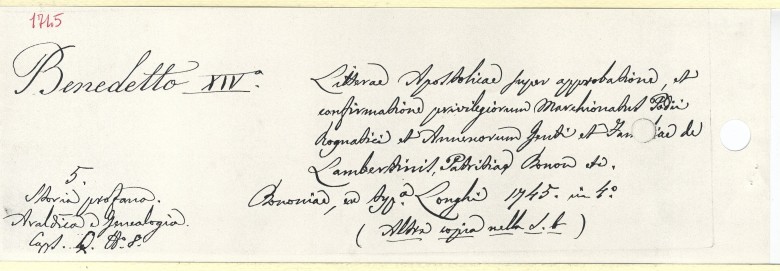 1745
Benedetto XIVº.
Litterae Apostolicae super approbatione, et
confirmatione privilegiorum Marchionatus Podii
Rognatici et Annexorum Genti et Familiae de
Lambertinis, Patritiae Bonon &.
Bononiae, ex typª Longhi 1745. in 4º
(Altra copia nella s. b)
5.
Storia profana.
Araldica e Genealogia.
Capp. Q. Nº 8.